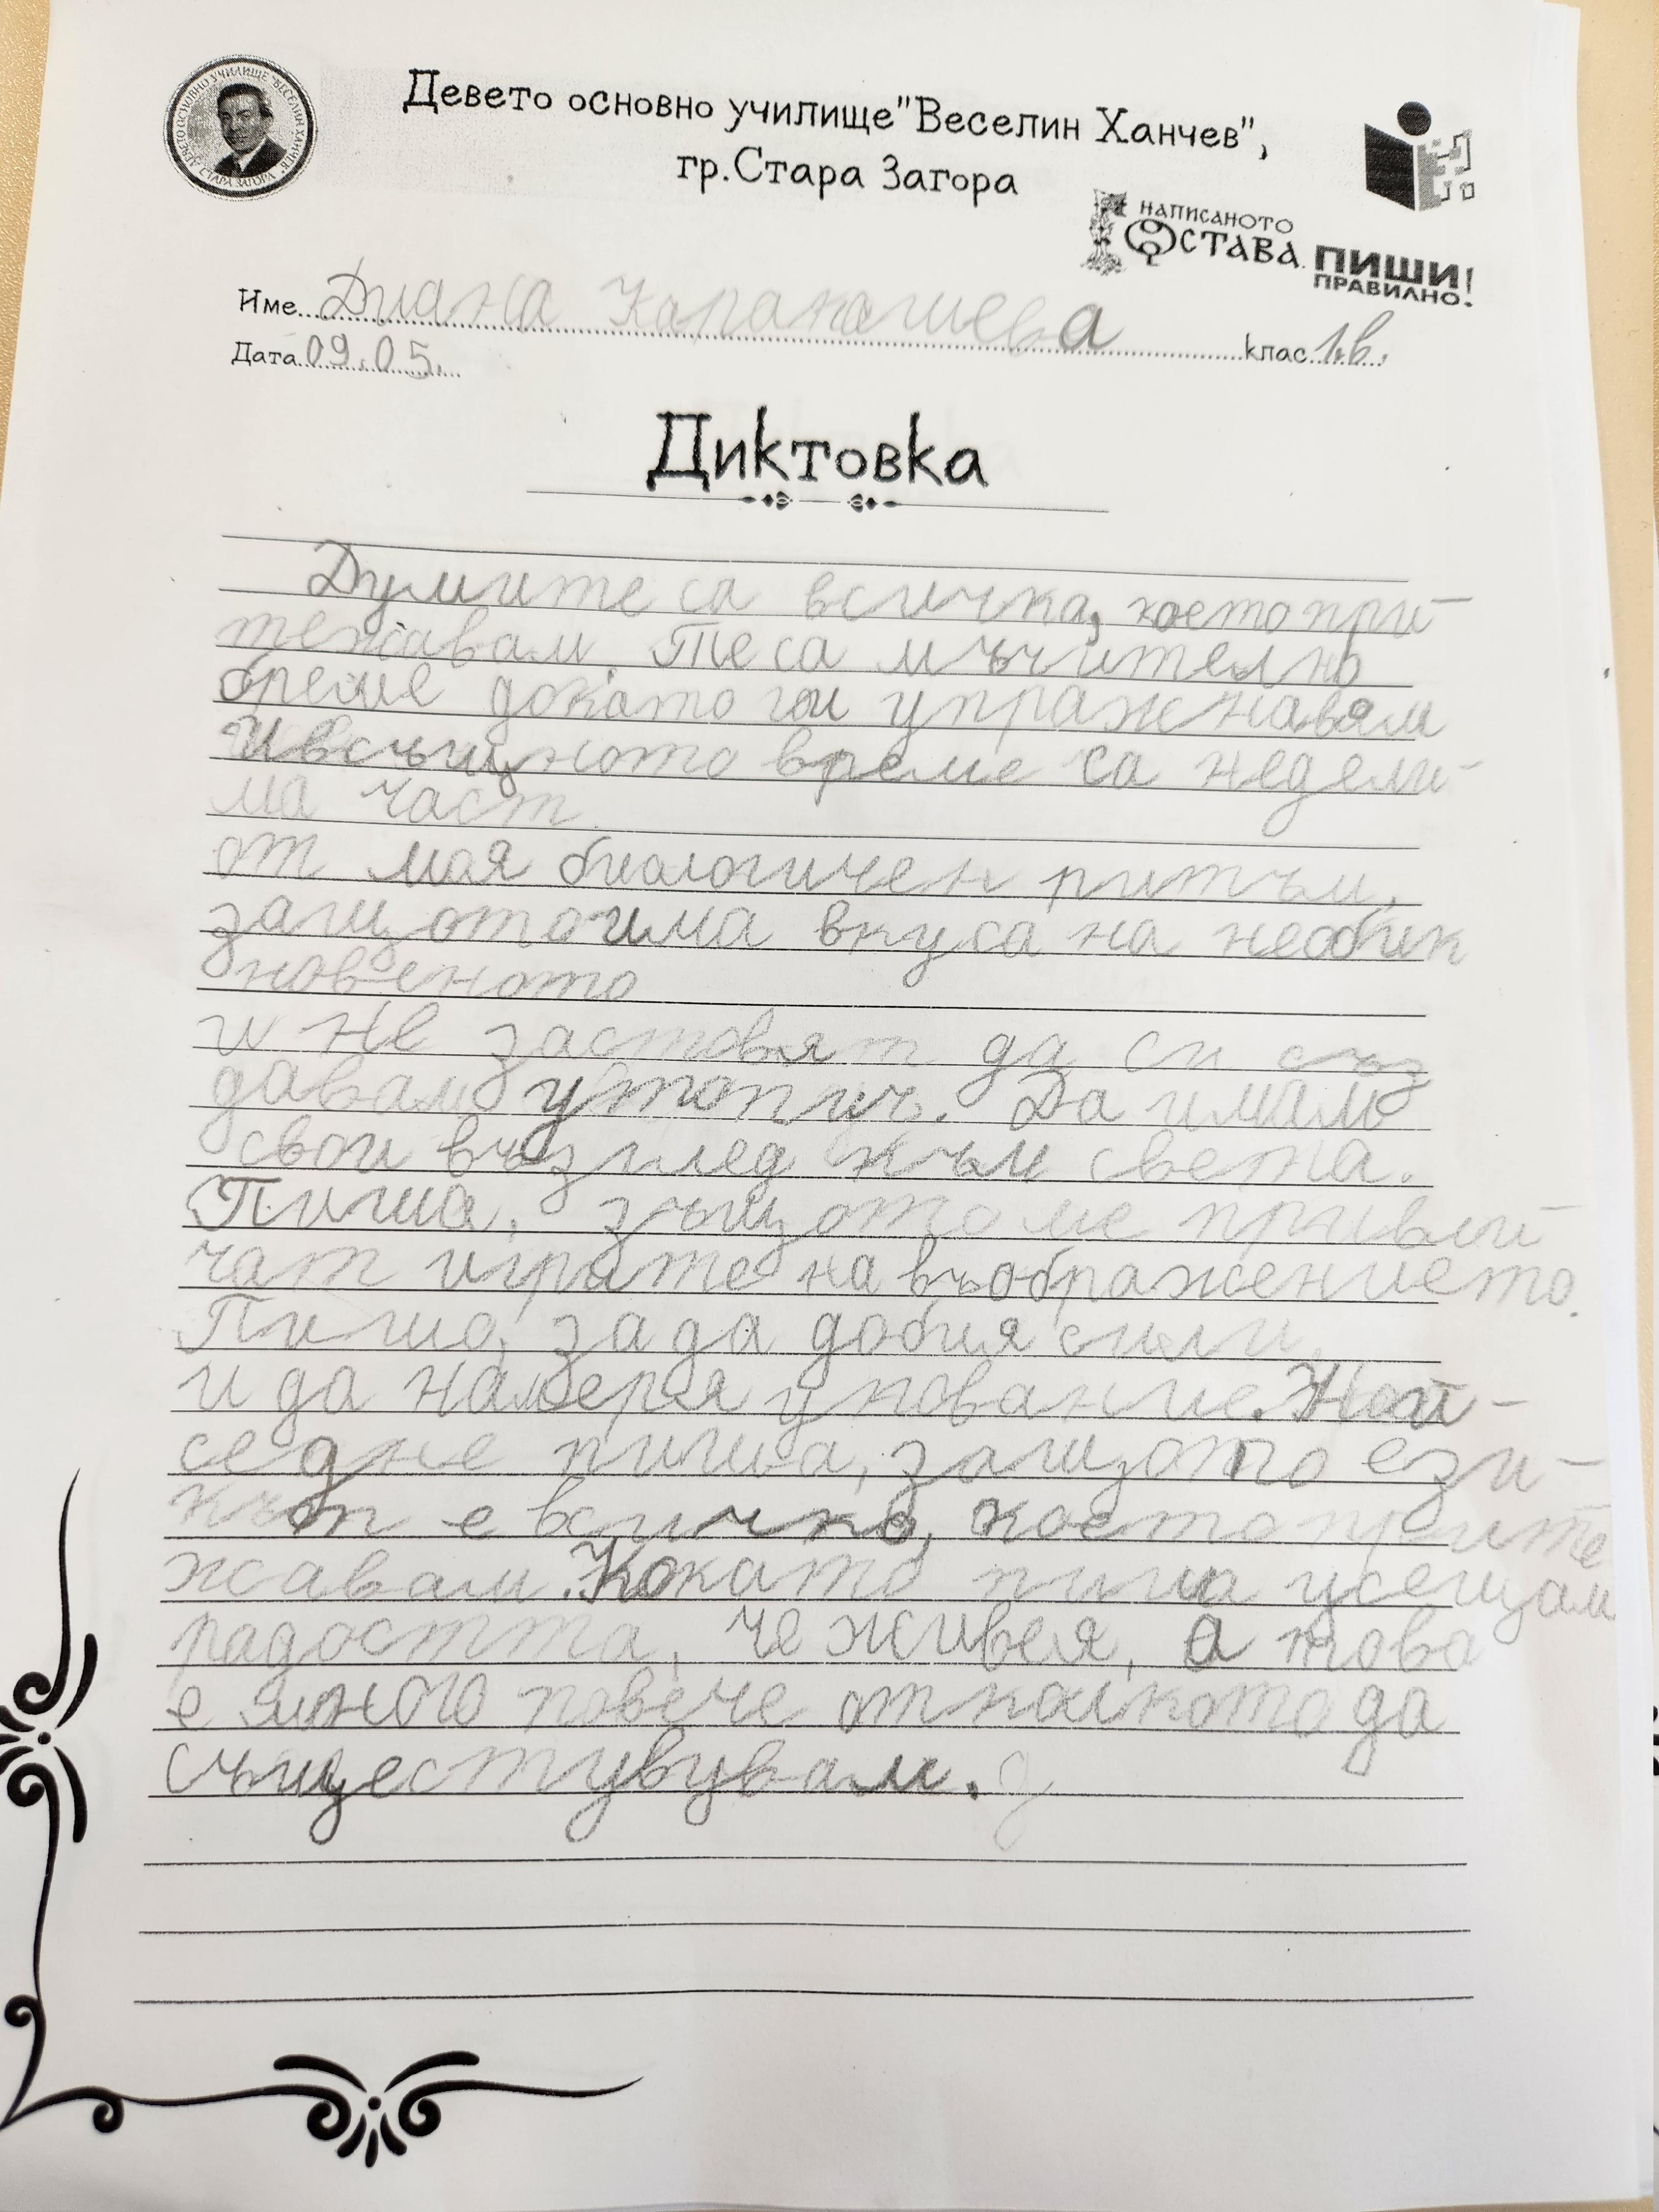 ДЕВЕТО ОСНОВНО УЧИЛИЩЕ "ВЕСЕЛИН ХАНЧЕВ" СТАРА ЗАГОРА
Девето основно училище"Веселин Ханчев",
гр.Стара Загора
НАПИСАНОТО
ОСТАВА. ПИШИ!
ПРАВИЛНО!
Име Диана Каранашева клас 1.в.
Дата 09.05.
Диктовка
Думите са всичко, което при-
тежавам. Те са мъчително
бреме докато ги упражнавям
и всъщното време са недели-
ма част
от моя биологичен ритъм,
защото има вкуса на необик
новеното
и не заствят да си съз
давам утопич. Да имам
свои възглед към света.
Пиша, зъщото ме привли-
чат игрите на въображението.
Пиша, за да добия сили
и да намеря упование. Най-
седне пиша, защото ези-
кът е всичко, което прите
жавам. Кокато пиша усещам
радостта, че живея, а това
е много повече отколкото да
съществувувам.